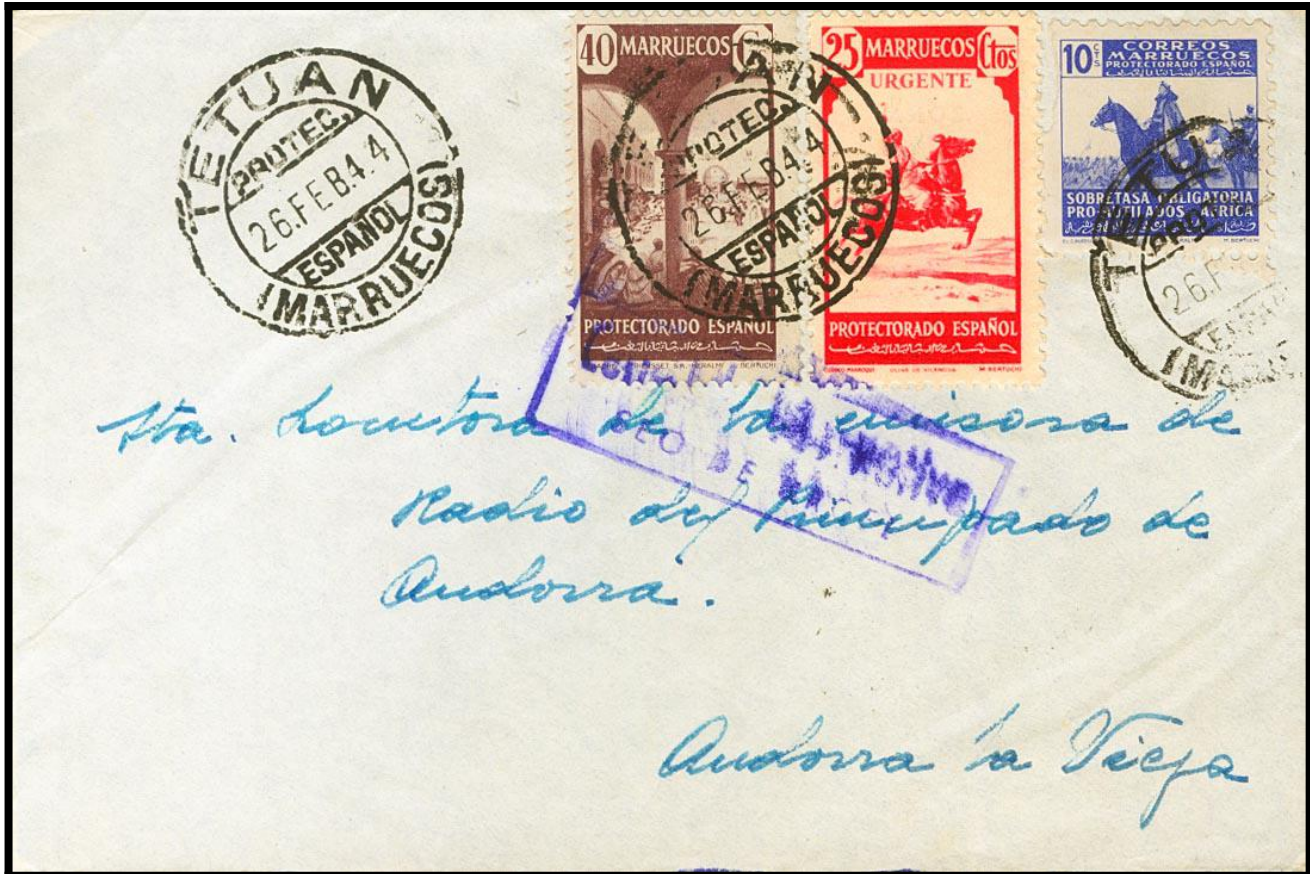 TETUAN
PROTEC.
26.FEB.44
ESPAÑOL
(MARRUECOS)
40 MARRUECOS Cts
PROTECTORADO ESPAÑOL
PROTEC.
26.FEB.44
ESPAÑOL
(MARRUECOS)
25 MARRUECOS Ctos
URGENTE
PROTECTORADO ESPAÑOL
M. BERTUCHI
10 CTS
CORREOS
MARRUECOS
PROTECTORADO ESPAÑOL
SOBRETASA OBLIGATORIA
PRO MUTILADOS AFRICA
M. BERTUCHI
TETU
26.F
Sta. Locutora de la emisora de
Radio del Principado de
Andorra.
Andorra la Vieja